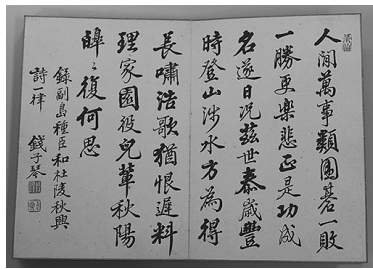 人間萬事類圍碁一敗
一勝更樂悲正是功成
名遂日況茲世泰歲豐
時登山涉水方為得
長嘯浩歌猶恨遲料
理家園役兒輩秋陽
皞〻復何思
錄副島種臣和杜陵秋興
詩一律 錢子琴